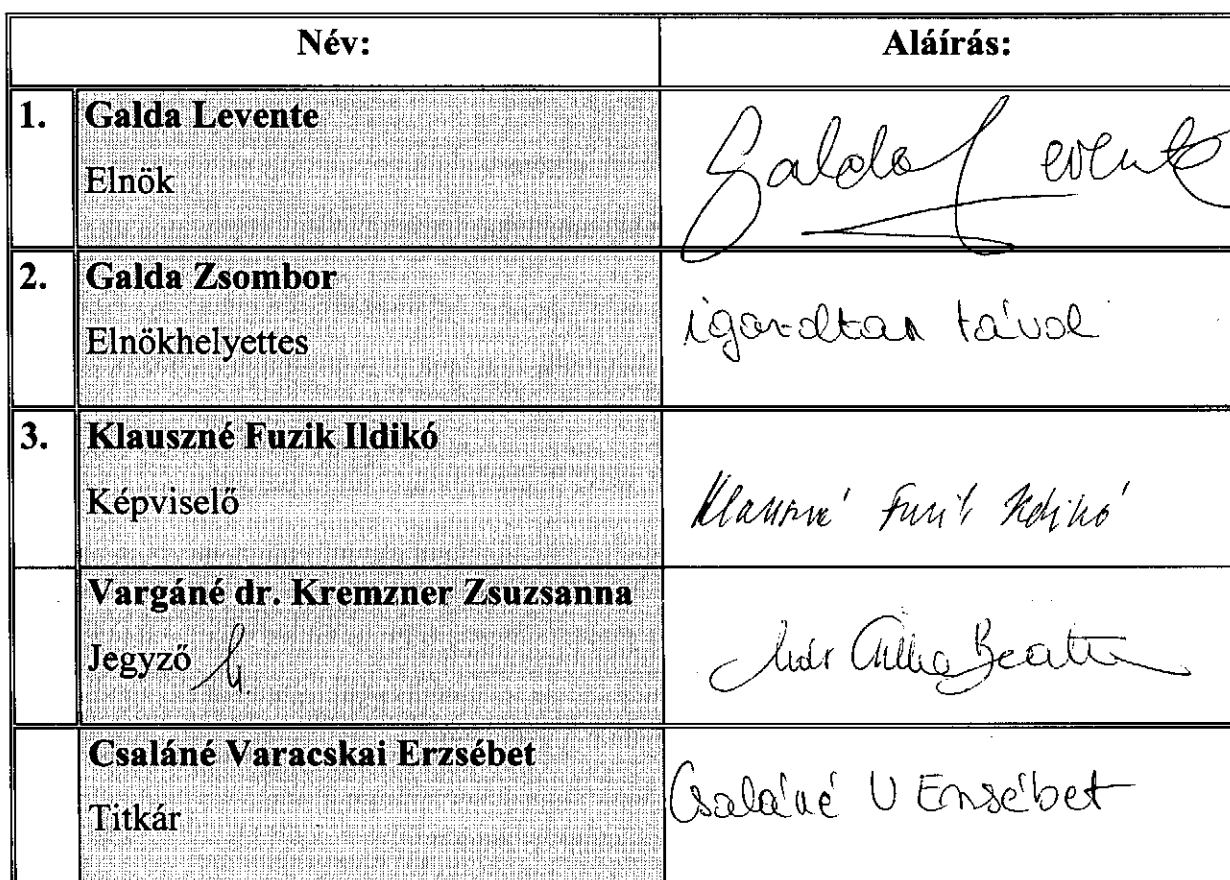 Név: Aláírás:
1. Galda Levente
Elnök
Galda Levente
2. Galda Zsombor
Elnökhelyettes
igazoltan távol
3. Klauszné Fuzik Ildikó
Képviselő
Klauszné Fuzik Ildikó
Vargáné dr. Kremzner Zsuzsanna
Jegyző h.
Beatr
Csaláné Varacskai Erzsébet
Titkár
Csaláné V Erzsébet